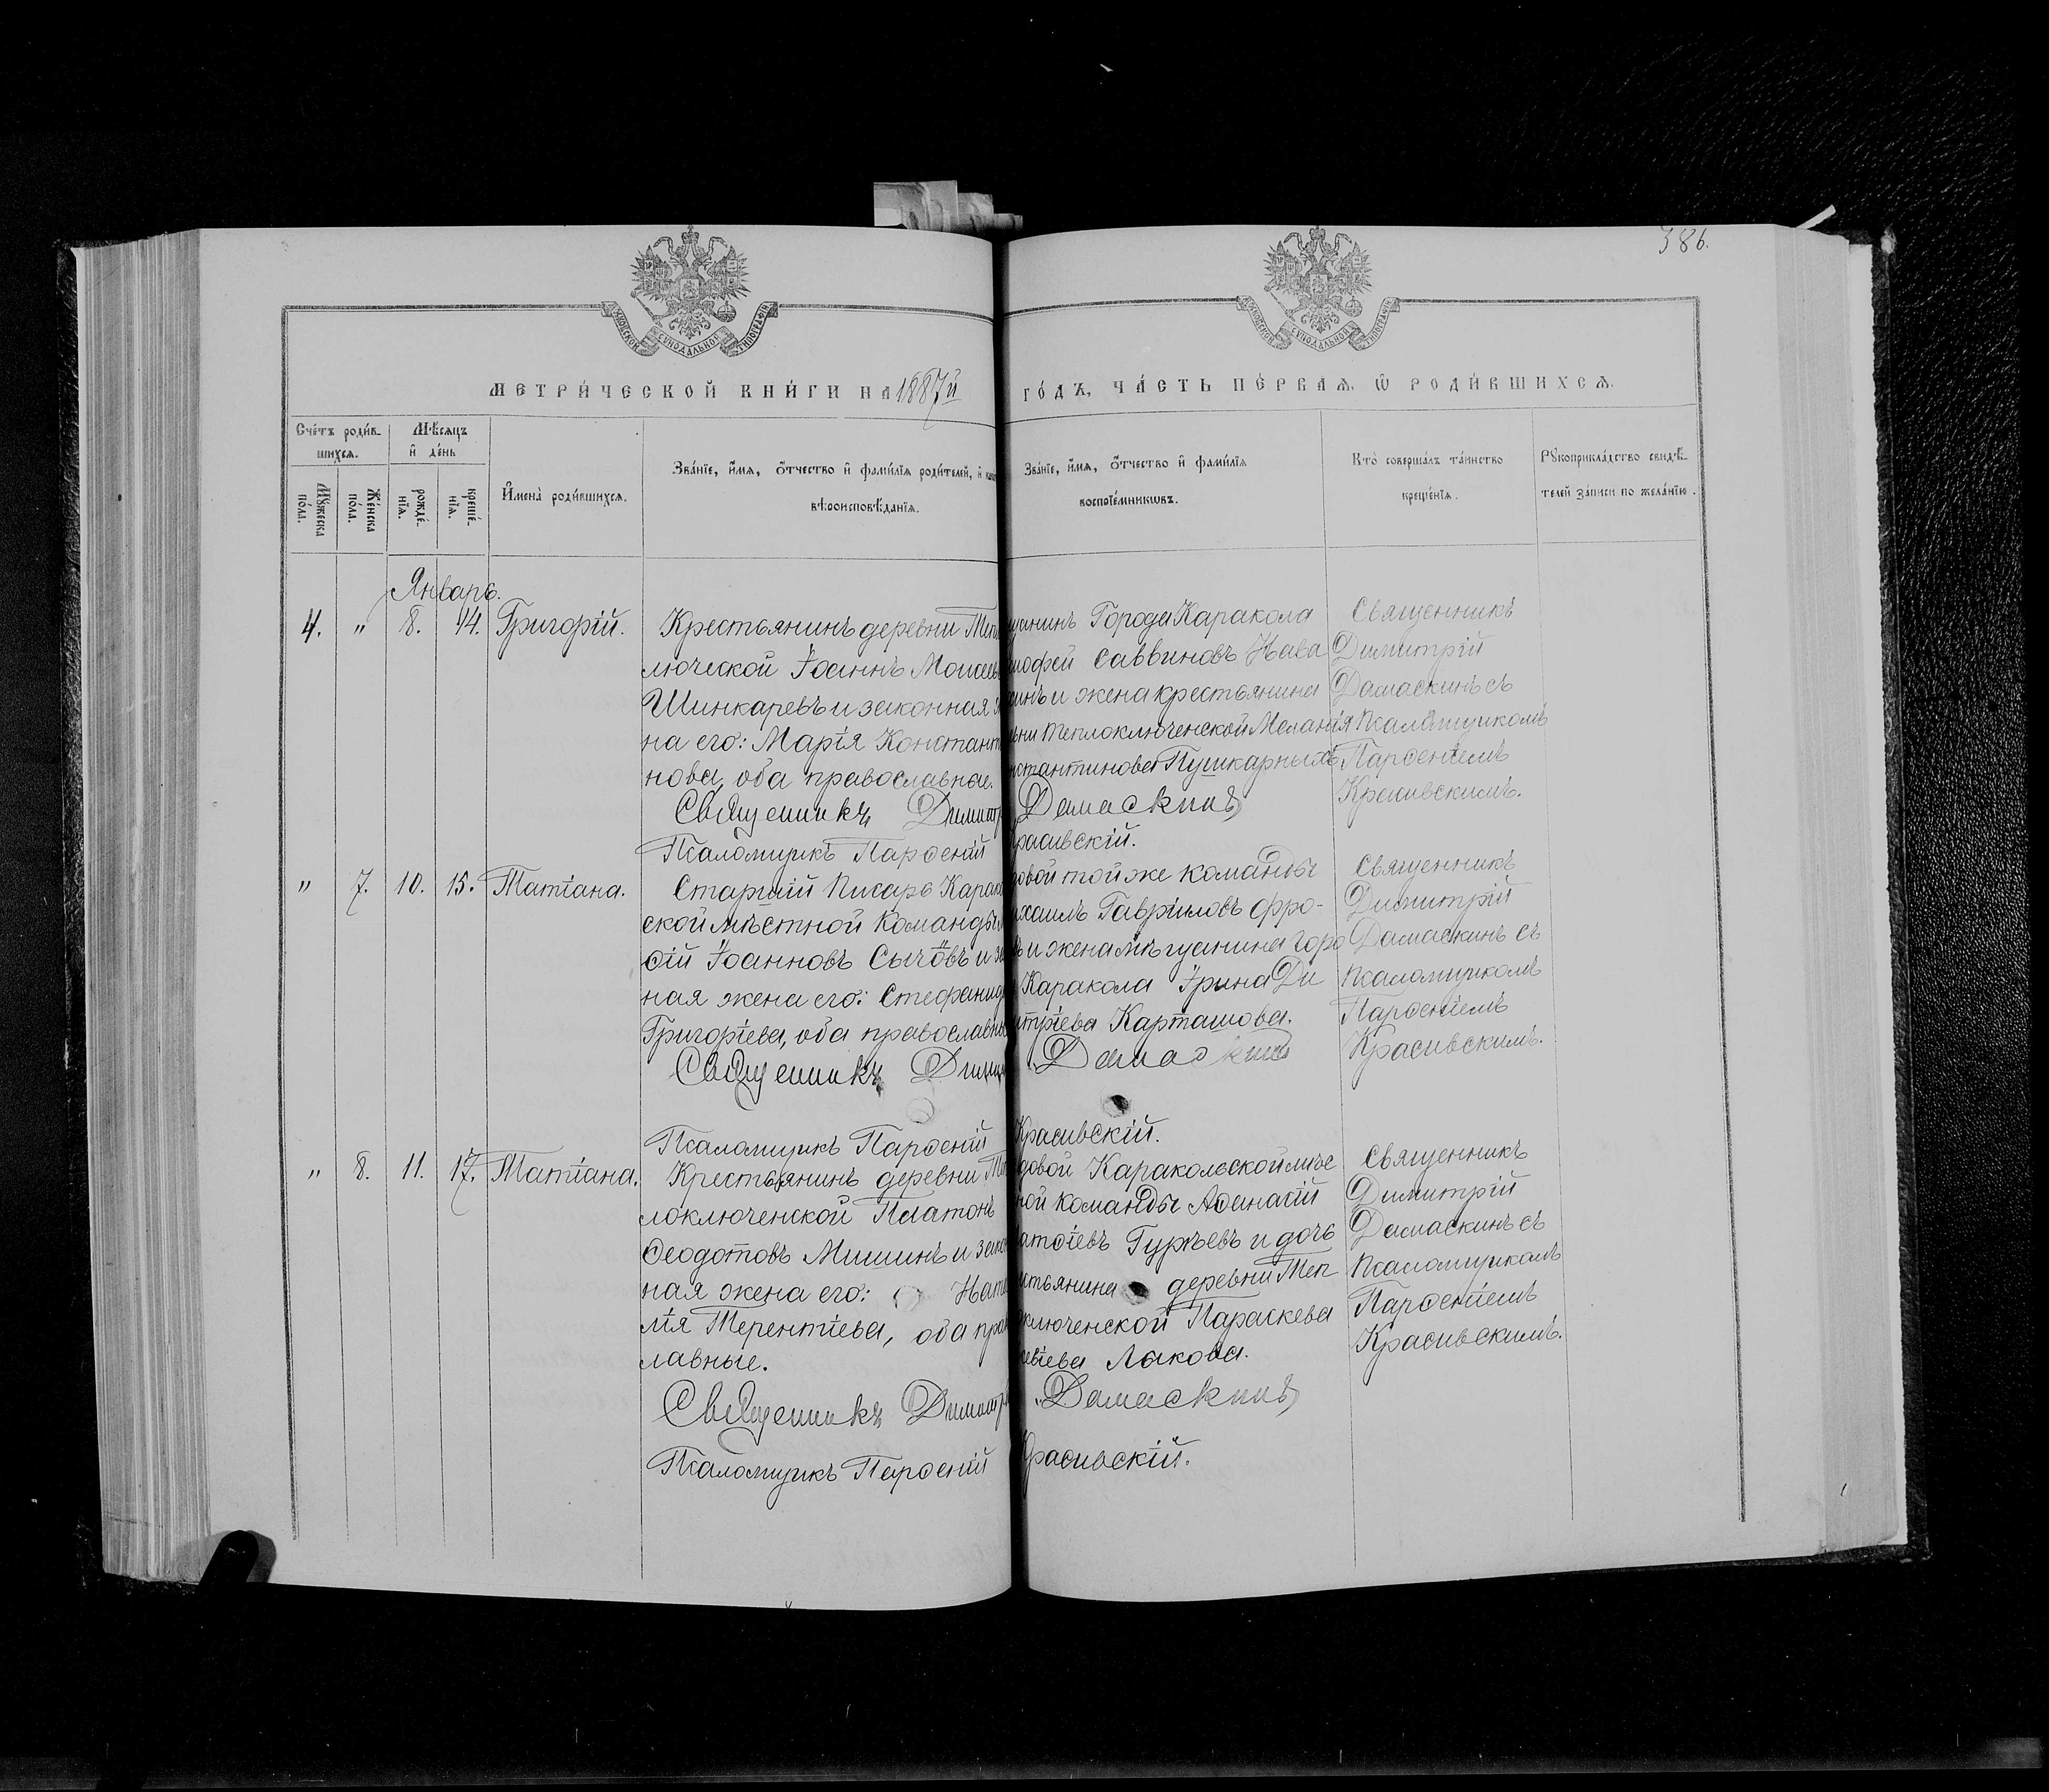 386.
ХАРЬКОВСКОЙ СѴНОДАЛЬНОЙ ТИПОГРАФІИ
МЕТРИ́ЧЕСКОЙ КНИ́ГИ НА 1887й
ГО́ДЪ, ЧА́СТЬ ПЕ́РВАѦ, Ѡ҆ РОДИ́ВШИХСѦ.
Сче́тъ роди́в-
шихсѧ.
Мꙋ́жеска
пола.
Же́нска
пола.
Мѣ́сѧцъ
и҆ де́нь
рожде́-
нїѧ.
креще́-
нїѧ.
И҆мена̀ роди́вшихсѧ.
Зва́нїе, и҆́мѧ, ѻ҆́тчество и҆ фами́лїѧ роди́телей, и҆
вѣроисповѣ́данїѧ.
Зва́нїе, и҆́мѧ, ѻ҆́тчество и҆ фами́лїѧ
воспрїе́мникѡвъ.
Кто̀ соверша́лъ та́инство
креще́нїѧ.
Рꙋкоприкла́дство свидѣ́-
телей за́писи по жела́нїю.
Январь.
4. „ 8. 14. Григорій.
Крестьянинъ деревни Теп
люческой Іоаннъ Моисеев
Шинкаревъ и законная ж
на его: Марія Константи
нова, оба православные.
Священникъ Димитр
Псаломщикъ Парѳеній
щанинъ Города Каракола
моѳей Саввиновъ Нава
инъ и жена крестьянина
вни Теплоключенской Меланія
нстантинова Пушкарныхъ
Дамаскинъ
Красивскій.
Священникъ
Димитрій
Дамаскинъ съ
псаломщикомъ
Парѳеніемъ
Красивскимъ.
„ 7. 10. 15. Татіана.
Старшій Писарь Карако
ской мѣстной Команды
ѳій Іоанновъ Сычовъ и за
ная жена его: Стефанида
Григоріева, оба православны
Священникъ Димит
Псаломщикъ Парѳеній
довой той же команды
ихаилъ Гавріиловъ Фро-
ъ и жена мѣщанина горо
Каракола Ірина Ди
итріева Карташова.
Дамаскинъ
Красивскій.
Священникъ
Димитрій
Дамаскинъ съ
псаломщикомъ
Парѳеніемъ
Красивскимъ.
„ 8. 11. 17. Татіана.
Крестьянинъ деревни Те
лоключенской Платонъ
Ѳеодотовъ Мишинъ и зако
ная жена его: Ната
лія Терентіева, оба прав
лавные.
Священникъ Димитр
Псаломщикъ Парѳеній
довой Каракольской мѣс
ной команды Аѳанасій
Гурьевъ и дочь
стьянина деревни Теп
оключенской Параскева
Лакова.
Дамаскинъ
Красивскій.
Священникъ
Димитрій
Дамаскинъ съ
псаломщикомъ
Парѳеніемъ
Красивскимъ.